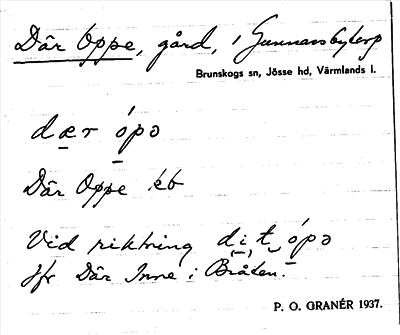 Där Oppe, gård, i Gunnarsbyterp
Brunskogs sn, Jösse hd, Värmlands l.
dær ópə
Där Oppe kb
Vid riktning di̱t ópə
Jfr Där Inne i Bråten.
P. O. GRANÉR 1937.